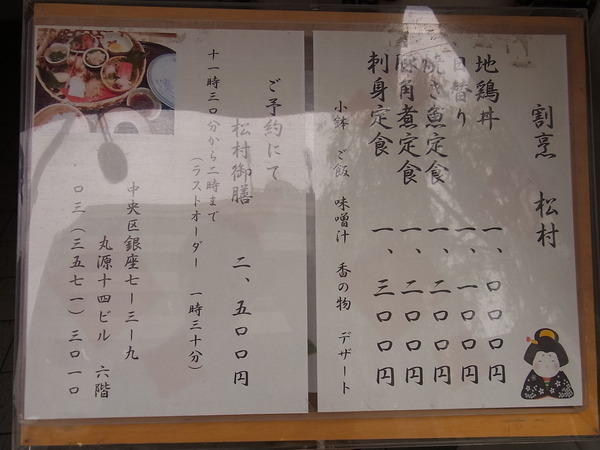 割烹 松村
地鶏丼 一、〇〇〇円
日替り 一、一〇〇円
焼き魚定食 一、二〇〇円
豚角煮定食 一、二〇〇円
刺身定食 一、三〇〇円
小鉢 ご飯 味噌汁 香の物 デザート
ご予約にて
松村御膳 二、五〇〇円
十一時三〇分から二時まで
(ラストオーダー 一時三十分)
中央区銀座七ー三ー九
丸源十四ビル 六階
〇三(三五七一)三〇一〇